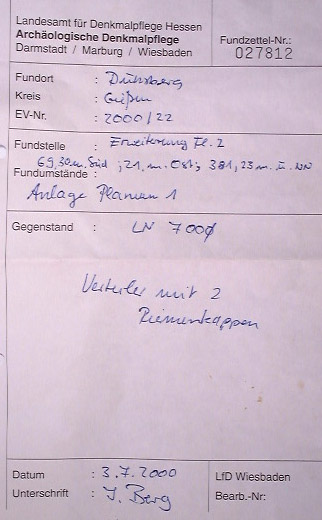 Landesamt für Denkmalpflege Hessen
Archäologische Denkmalpflege
Darmstadt / Marburg / Wiesbaden
Fundzettel-Nr.:
027812
Fundort : Dünsberg
Kreis : Gießen
EV-Nr. : 2000/22
Fundstelle : Erweiterung Fl. 2
69,30 m. Süd ; 21, m. Ost ; 381,23 m. ü. NN
Fundumstände :
Anlage Planum 1
Gegenstand : LN 700
Verteiler mit 2
Riemenkappen
Datum : 3.7.2000
Unterschrift : J. Berg
LfD Wiesbaden
Bearb.-Nr: